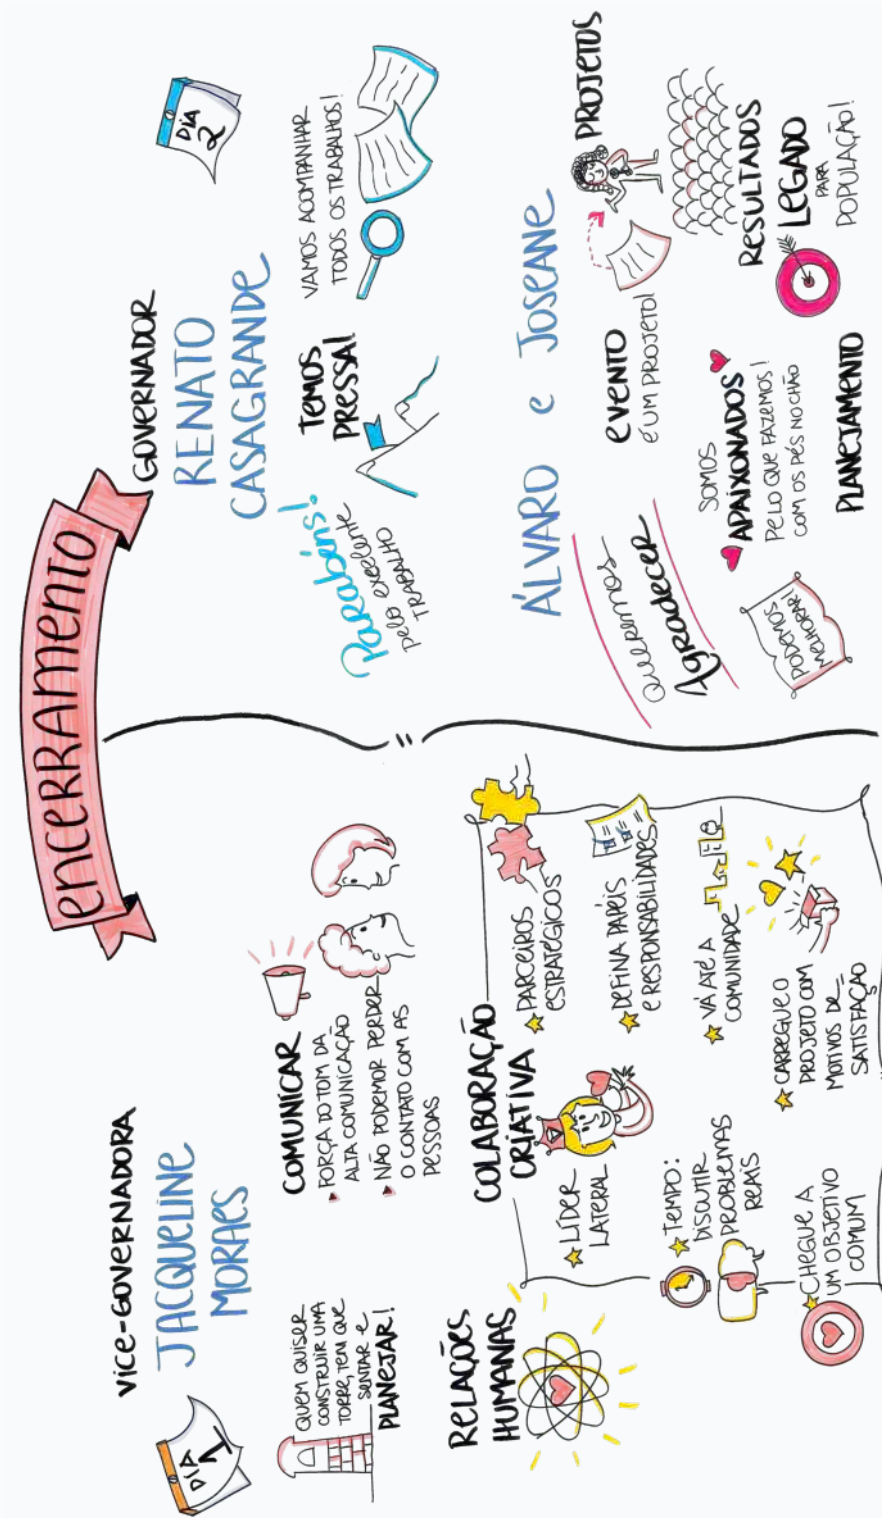 encerramento
DIA
1
vice-GOVERNADORA
JACQUELINE
MORAES
QUEM QUISER
CONSTRUIR UMA
TORRE, TEM QUE
SENTAR E
PLANEJAR!
COMUNICAR
FORÇA DO TOM DA
ALTA COMUNICAÇÃO
NÃO PODEMOR PERDER
O CONTATO COM AS
PESSOAS
RELAÇÕES
HUMANAS
COLABORAÇÃO
CRIATIVA
LÍDER
LATERAL
TEMPO:
DISCUTIR
PROBLEMAS
REAIS
CHEGUE A
UM OBJETIVO
COMUM
PARCEIROS
ESTRATÉGICOS
DEFINA PAPÉIS
E RESPONSABILIDADES
VÁ ATÉ A
COMUNIDADE
CARREGUE O
PROJETO COM
MOTIVOS DE
SATISFAÇÃO
GOVERNADOR
RENATO
CASAGRANDE
DIA
2
Parabéns!
pelo excelente
TRABALHO
TEMOS
PRESSA!
VAMOS ACOMPANHAR
TODOS OS TRABALHOS!
ÁLVARO e JOSEANE
Queremos
Agradecer
EVENTO
É UM PROJETO!
PROJETOS
PODEMOS
MELHORAR!
SOMOS
APAIXONADOS
PELO QUE FAZEMOS!
COM OS PÉS NO CHÃO
PLANEJAMENTO
RESULTADOS
LEGADO
PARA
POPULAÇÃO!